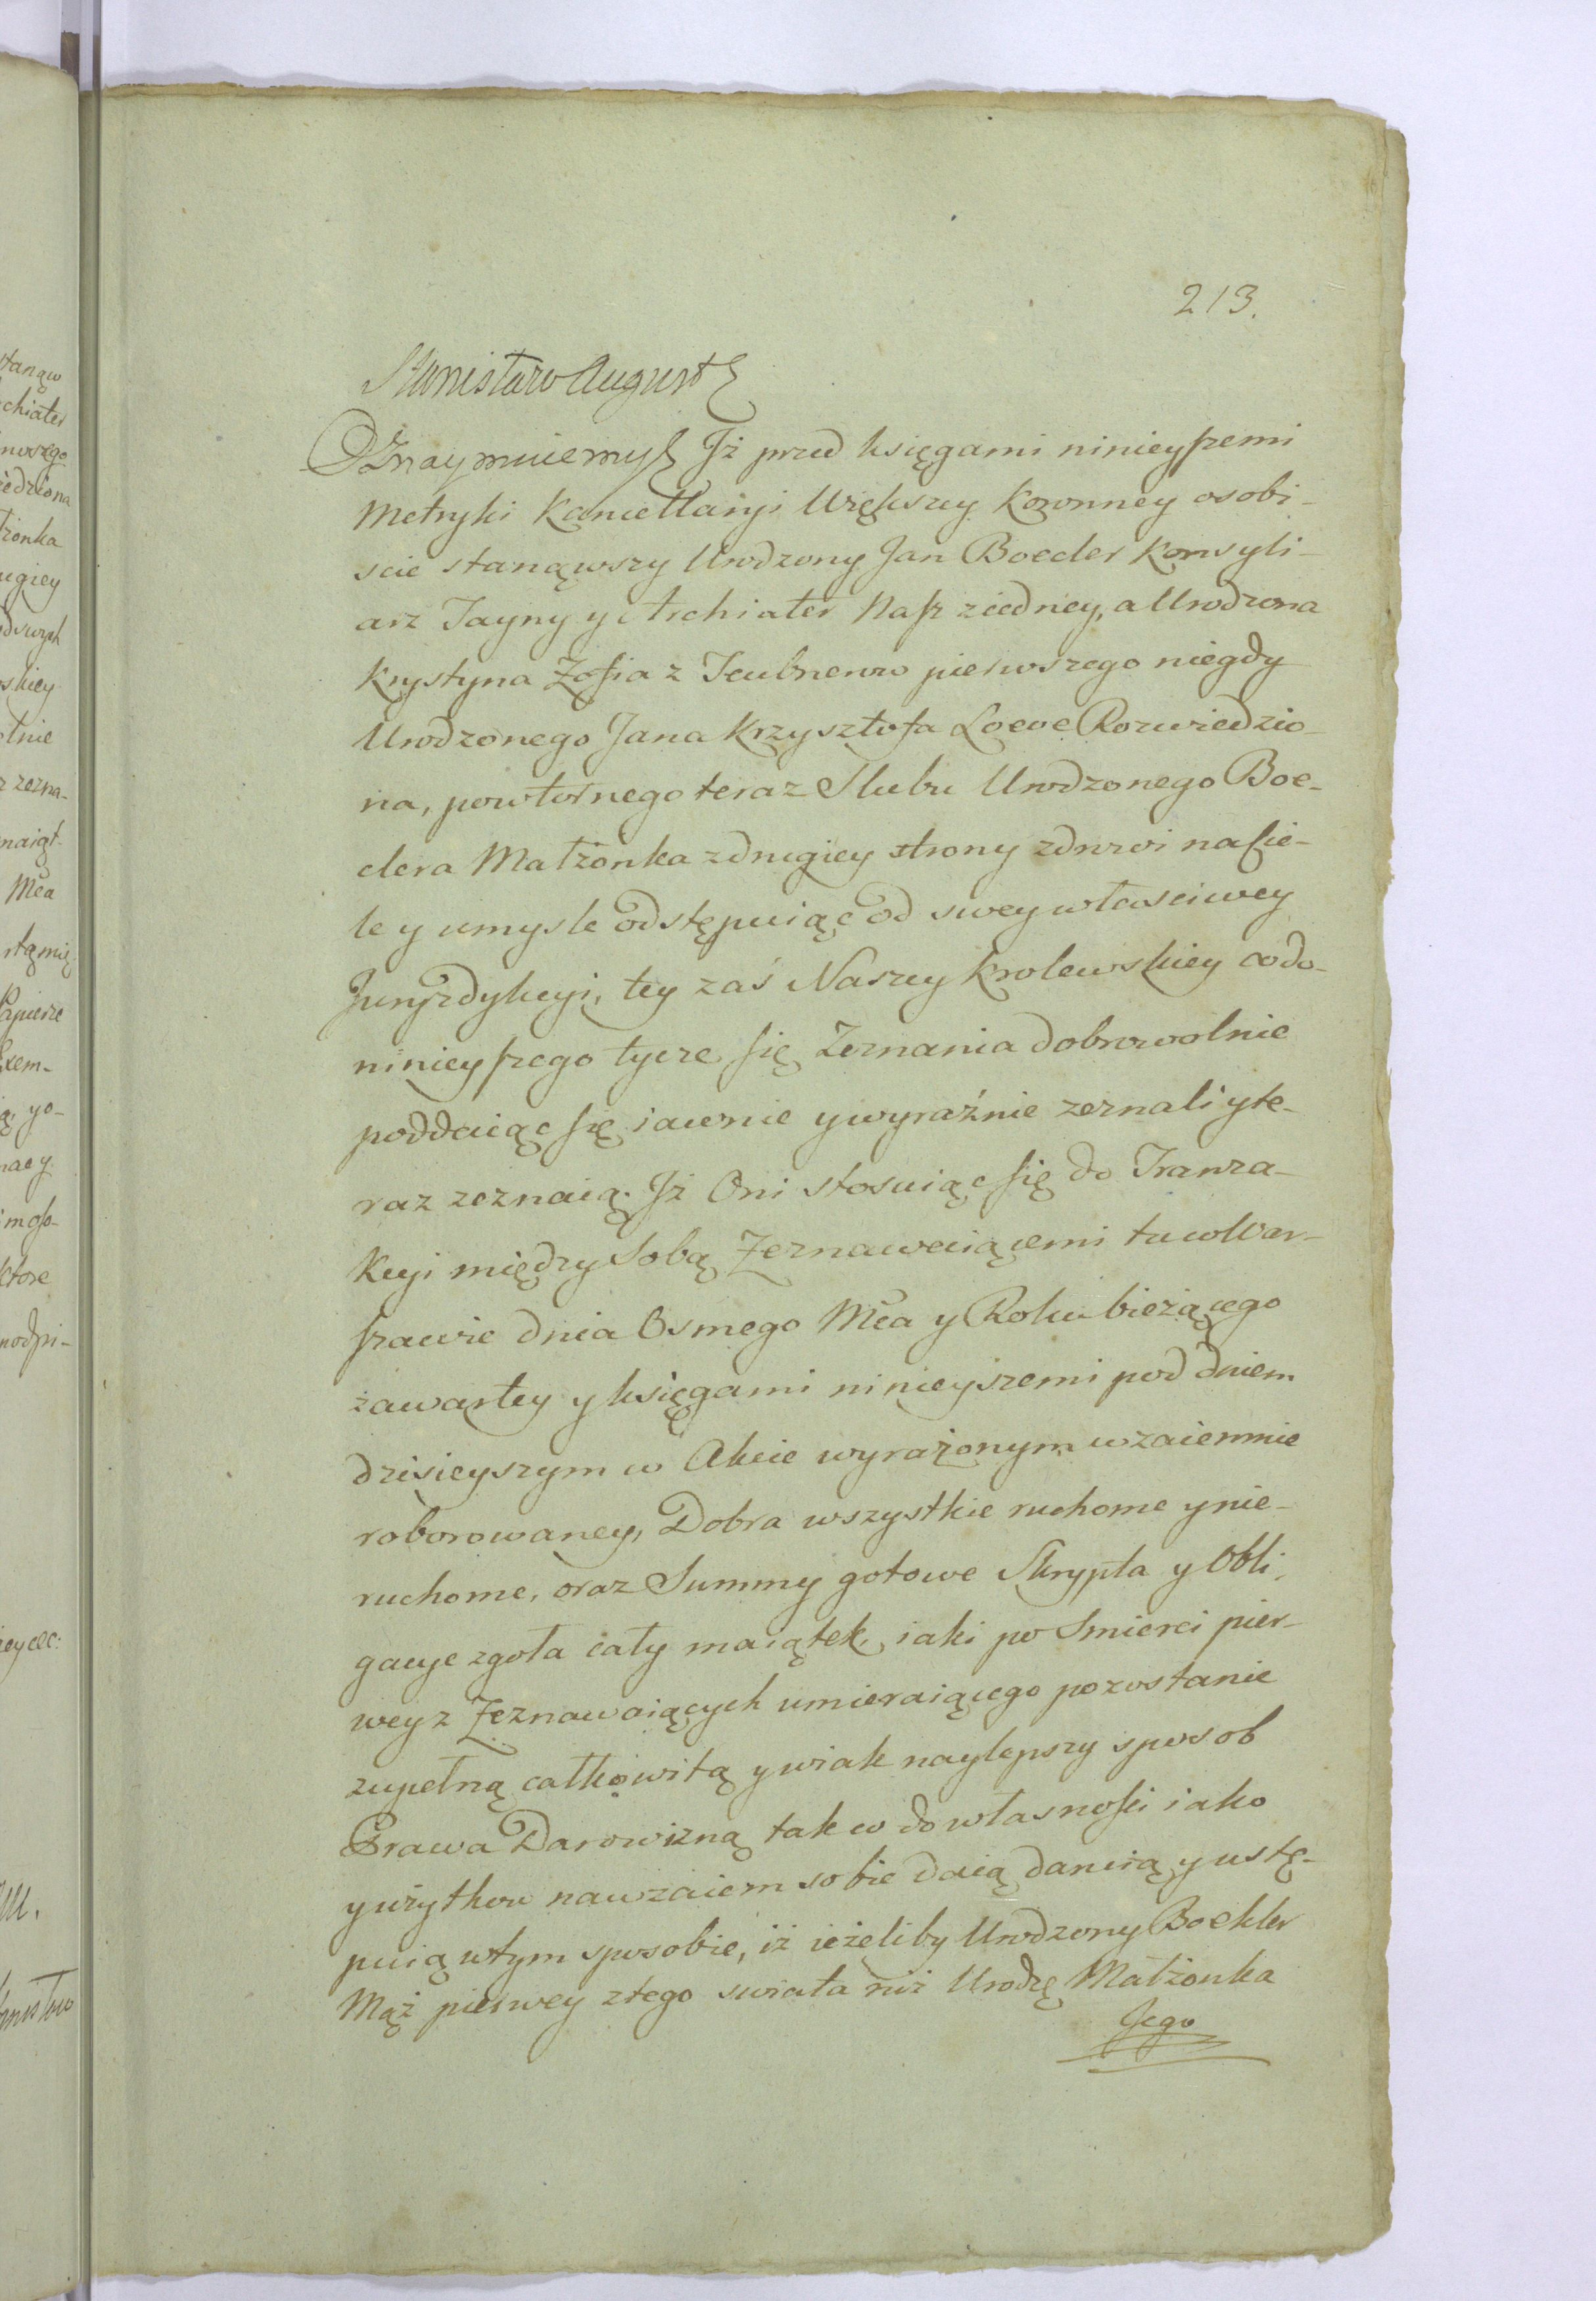 213.
Stanisław August
Oznaymuiemy Jż przed księgami ninieyszemi
Metryki Kancellaryi Większey Koronney osobi-
scie stanąwszy Urodzony Jan Boecler Konsyli-
arz Tayny y Archiater Nasz z iedney, a Urodzona
Krystyna Zofia z Teubnerow pierwszego niegdy
Urodzonego Jana Krzysztofa Loewe Rozwiedzio-
na, powtornego teraz Slubu Urodzonego Boe-
clera Małżonka z drugiey strony zdrowi na cie-
le y umysle odstępuiąc od swey własciwey
Juryzdykcyi, tey zaś Naszey Krolewskiey co do
ninieyszego tycze się Zeznania dobrowolnie
poddaiąc się iawnie y wyraźnie zeznali y te-
raz zeznaią. Jż Oni stosuiąc się do Tranza-
kcyi między Sobą Zeznawaiącemi tu w War-
szawie dnia Osmego Mca y Roku bieżącego
zawartey y księgami ninieyszemi pod dniem
dzisieyszym w Akcie wyrażonym wzaiemnie
roborowaney, Dobra wszystkie ruchome y nie-
ruchome, oraz Summy gotowe Skrypta y Obli-
gacye zgoła cały maiątek, iaki po Smierci pier-
wey z Zeznawaiących umieraiącego pozostanie
zupełną całkowitą y wiak naylepszy sposob
Prawa Darowizną tak co do własności iako
y użytkow nawzaiem sobie daią daruią y ustę-
puią w tym sposobie, iż ieżeliby Urodzony Boekler
Mąż pierwey z tego swiata niż Urodzę Małżonka
Jego